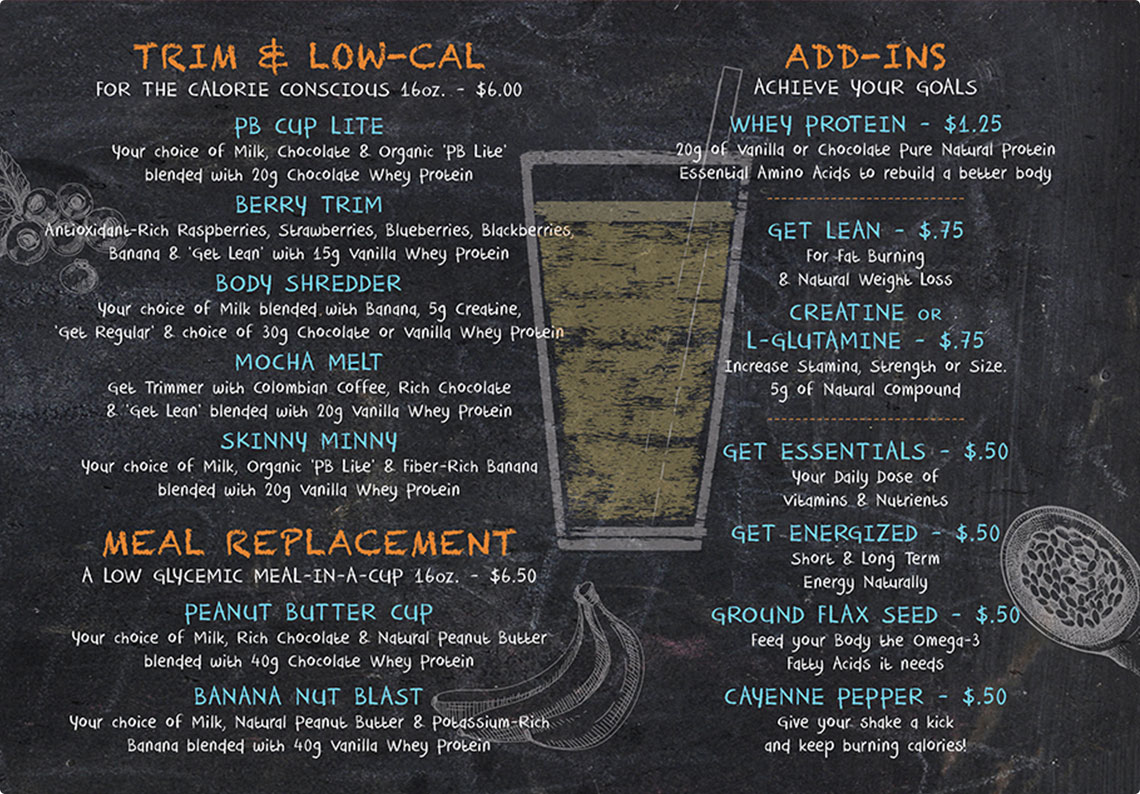 TRIM & LOW-CAL
FOR THE CALORIE CONSCIOUS 16oz. - $6.00
PB CUP LITE
Your choice of Milk, Chocolate & Organic 'PB Lite'
blended with 20g Chocolate Whey Protein
BERRY TRIM
Antioxidant-Rich Raspberries, Strawberries, Blueberries, Blackberries,
Banana & 'Get Lean' with 15g Vanilla Whey Protein
BODY SHREDDER
Your choice of Milk blended with Banana, 5g Creatine,
'Get Regular' & choice of 30g Chocolate or Vanilla Whey Protein
MOCHA MELT
Get Trimmer with Colombian Coffee, Rich Chocolate
& 'Get Lean' blended with 20g Vanilla Whey Protein
SKINNY MINNY
Your choice of Milk, Organic 'PB Lite' & Fiber-Rich Banana
blended with 20g Vanilla Whey Protein
MEAL REPLACEMENT
A LOW GLYCEMIC MEAL-IN-A-CUP 16oz. - $6.50
PEANUT BUTTER CUP
Your choice of Milk, Rich Chocolate & Natural Peanut Butter
blended with 40g Chocolate Whey Protein
BANANA NUT BLAST
Your choice of Milk, Natural Peanut Butter & Potassium-Rich
Banana blended with 40g Vanilla Whey Protein
ADD-INS
ACHIEVE YOUR GOALS
WHEY PROTEIN - $1.25
20g of Vanilla or Chocolate Pure Natural Protein
Essential Amino Acids to rebuild a better body
GET LEAN - $.75
For Fat Burning
& Natural Weight Loss
CREATINE OR
L-GLUTAMINE - $.75
Increase Stamina, Strength or Size.
5g of Natural Compound
GET ESSENTIALS - $.50
Your Daily Dose of
Vitamins & Nutrients
GET ENERGIZED - $.50
Short & Long Term
Energy Naturally
GROUND FLAX SEED - $.50
Feed your Body the Omega-3
Fatty Acids it needs
CAYENNE PEPPER - $.50
Give your shake a kick
and keep burning calories!